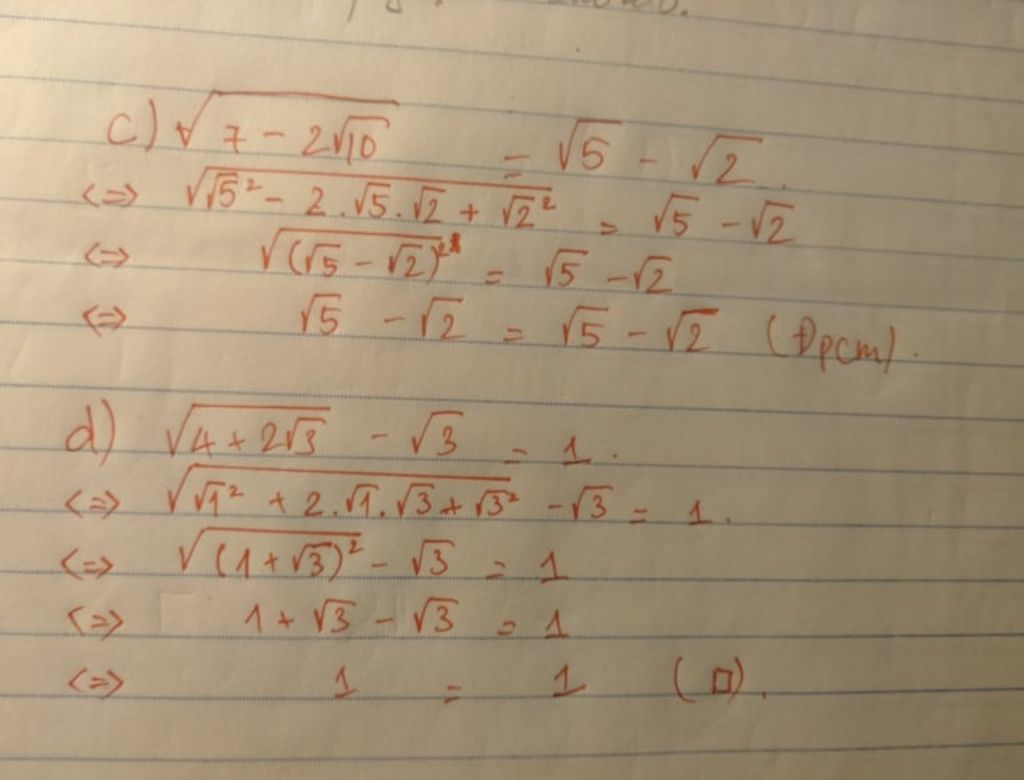 c) √(7 - 2√10) = √5 - √2.
<=> √(√5² - 2.√5.√2 + √2²) = √5 - √2
<=> √((√5 - √2)²) = √5 - √2
<=> √5 - √2 = √5 - √2 (Đpcm).
d) √(4 + 2√3) - √3 = 1.
<=> √(√1² + 2.√1.√3 + √3²) - √3 = 1.
<=> √((1 + √3)²) - √3 = 1
<=> 1 + √3 - √3 = 1
<=> 1 = 1 (□).